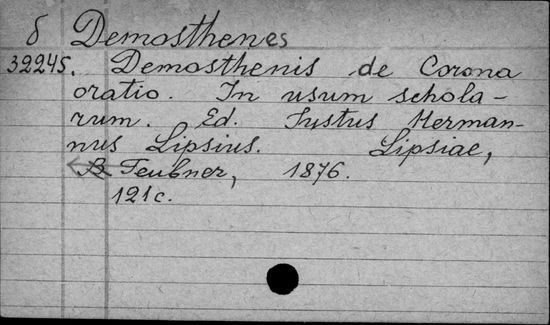 δ Demosthenes
32245. Demosthenis de Corona
oratio. In usum schola-
rum. Ed. Justus Herman-
nus Lipsius. Lipsiae,
B Teubner, 1876.
121c.